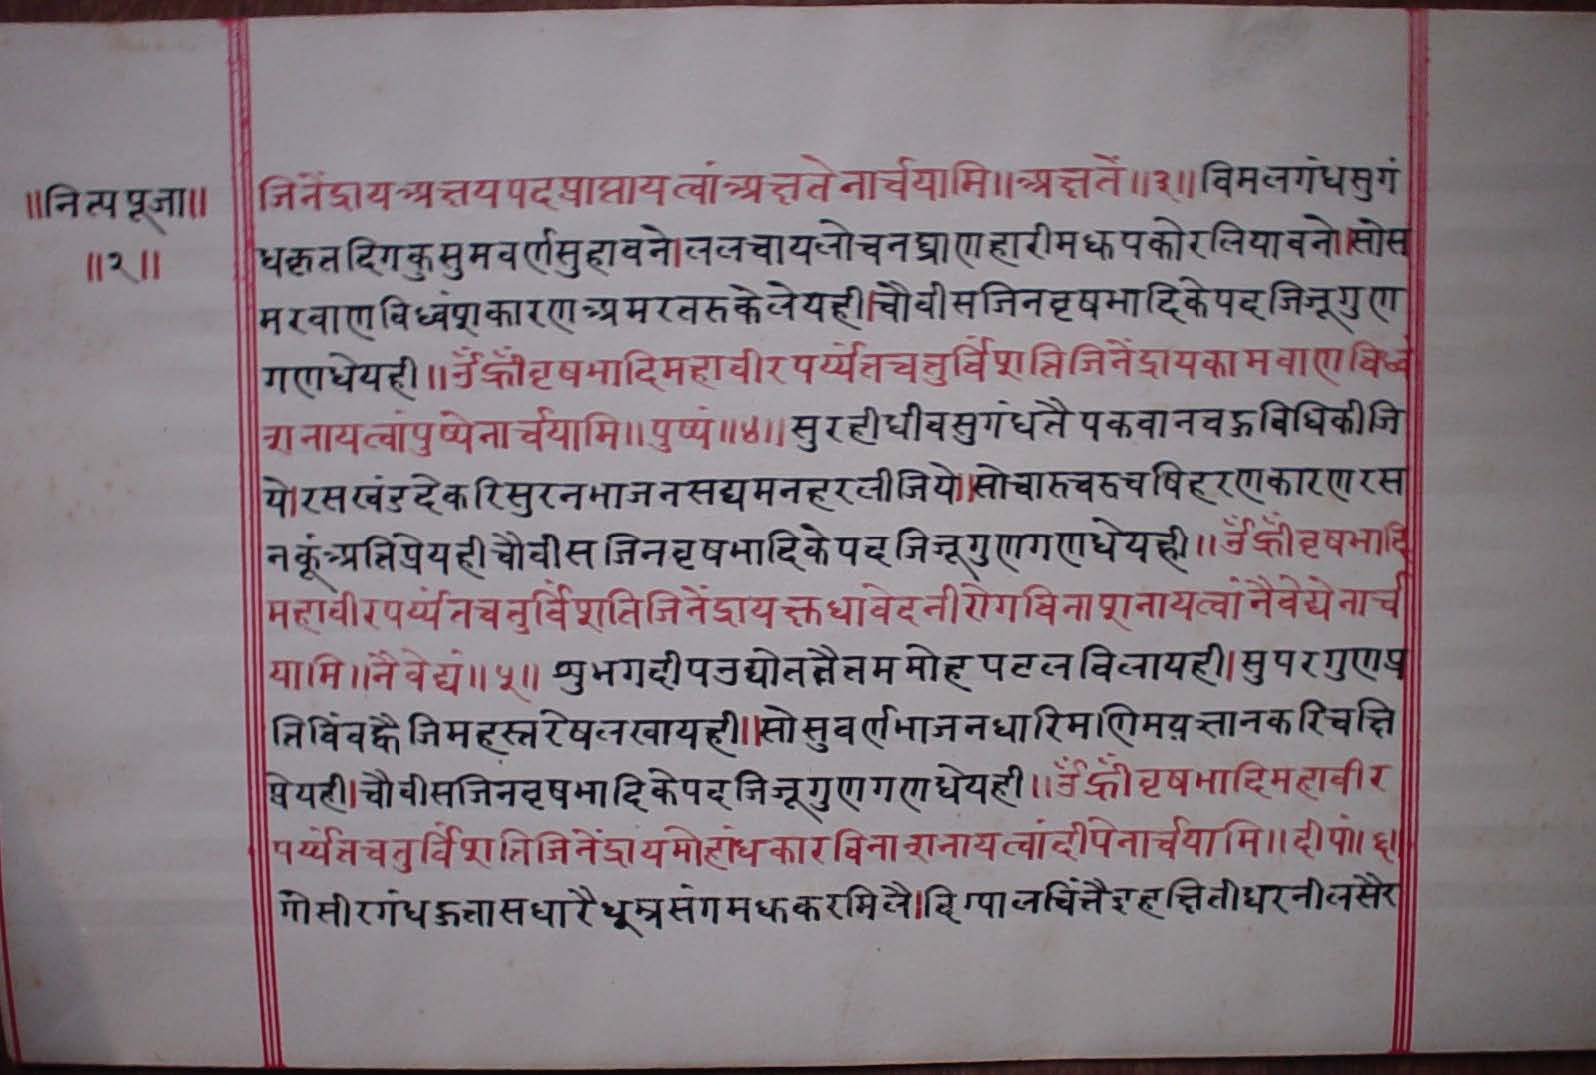 ॥नित्यपूजा॥
॥२॥
जिनेंद्रायअक्षयपदप्राप्तायत्वांअक्षतेनार्चयामि॥अक्षतं॥३॥विमलगंधसुगं
धकृतदिगकुसुमवर्णसुहावने।ललचायलोचनघ्राणहारीमधुपकोरलियावने॥सोस
मरवाणविध्वंशकारणअमरतरुकेलेयही।चौवीसजिनवृषभादिकेपदजिजूगुण
गणधेयही॥ॐह्रींवृषभादिमहावीरपर्य्यंतचतुर्विंशतिजिनेंद्रायकामवाणविध्वं
शनायत्वांपुष्पेनार्चयामि॥पुष्पं॥४॥सुरहीघीवसुगंधतैपकवानवऊविधिकीजि
ये।रसखंडदेकरिसुरनभाजनसद्यमनहरलीजिये॥सोचारुचरुचषिहरणकारणरस
नकूंअतिप्रेयहीचौवीसजिनवृषभादिकेपदजिजूगुणगणधेयही॥ॐह्रींवृषभादि
महावीरपर्य्यंतचतुर्विंशतिजिनेंद्रायक्षुधावेदनीरोगविनाशनायत्वांनैवेद्येनार्च
यामि॥नैवेद्यं॥५॥शुभगदीपउद्योततैतममोहपटलविलायही।सुपरगुणप्र
तिविंवह्वैजिमहस्तरेषलखायही॥सोसुवर्णभाजनधारिमणिमयज्ञानकरिचक्षि
प्रेयही।चौवीसजिनवृषभादिकेपदजिजूगुणगणधेयही॥ॐह्रींवृषभादिमहावीर
पर्य्यंतचतुर्विंशतिजिनेंद्रायमोहांधकारविनाशनायत्वांदीपेनार्चयामि॥दीपं॥६॥
गोसीरगंधऊतासधारैधूम्रसंगमधुकरमिलै।दिग्पालचिंतैइहक्षितीधरनीलसैर